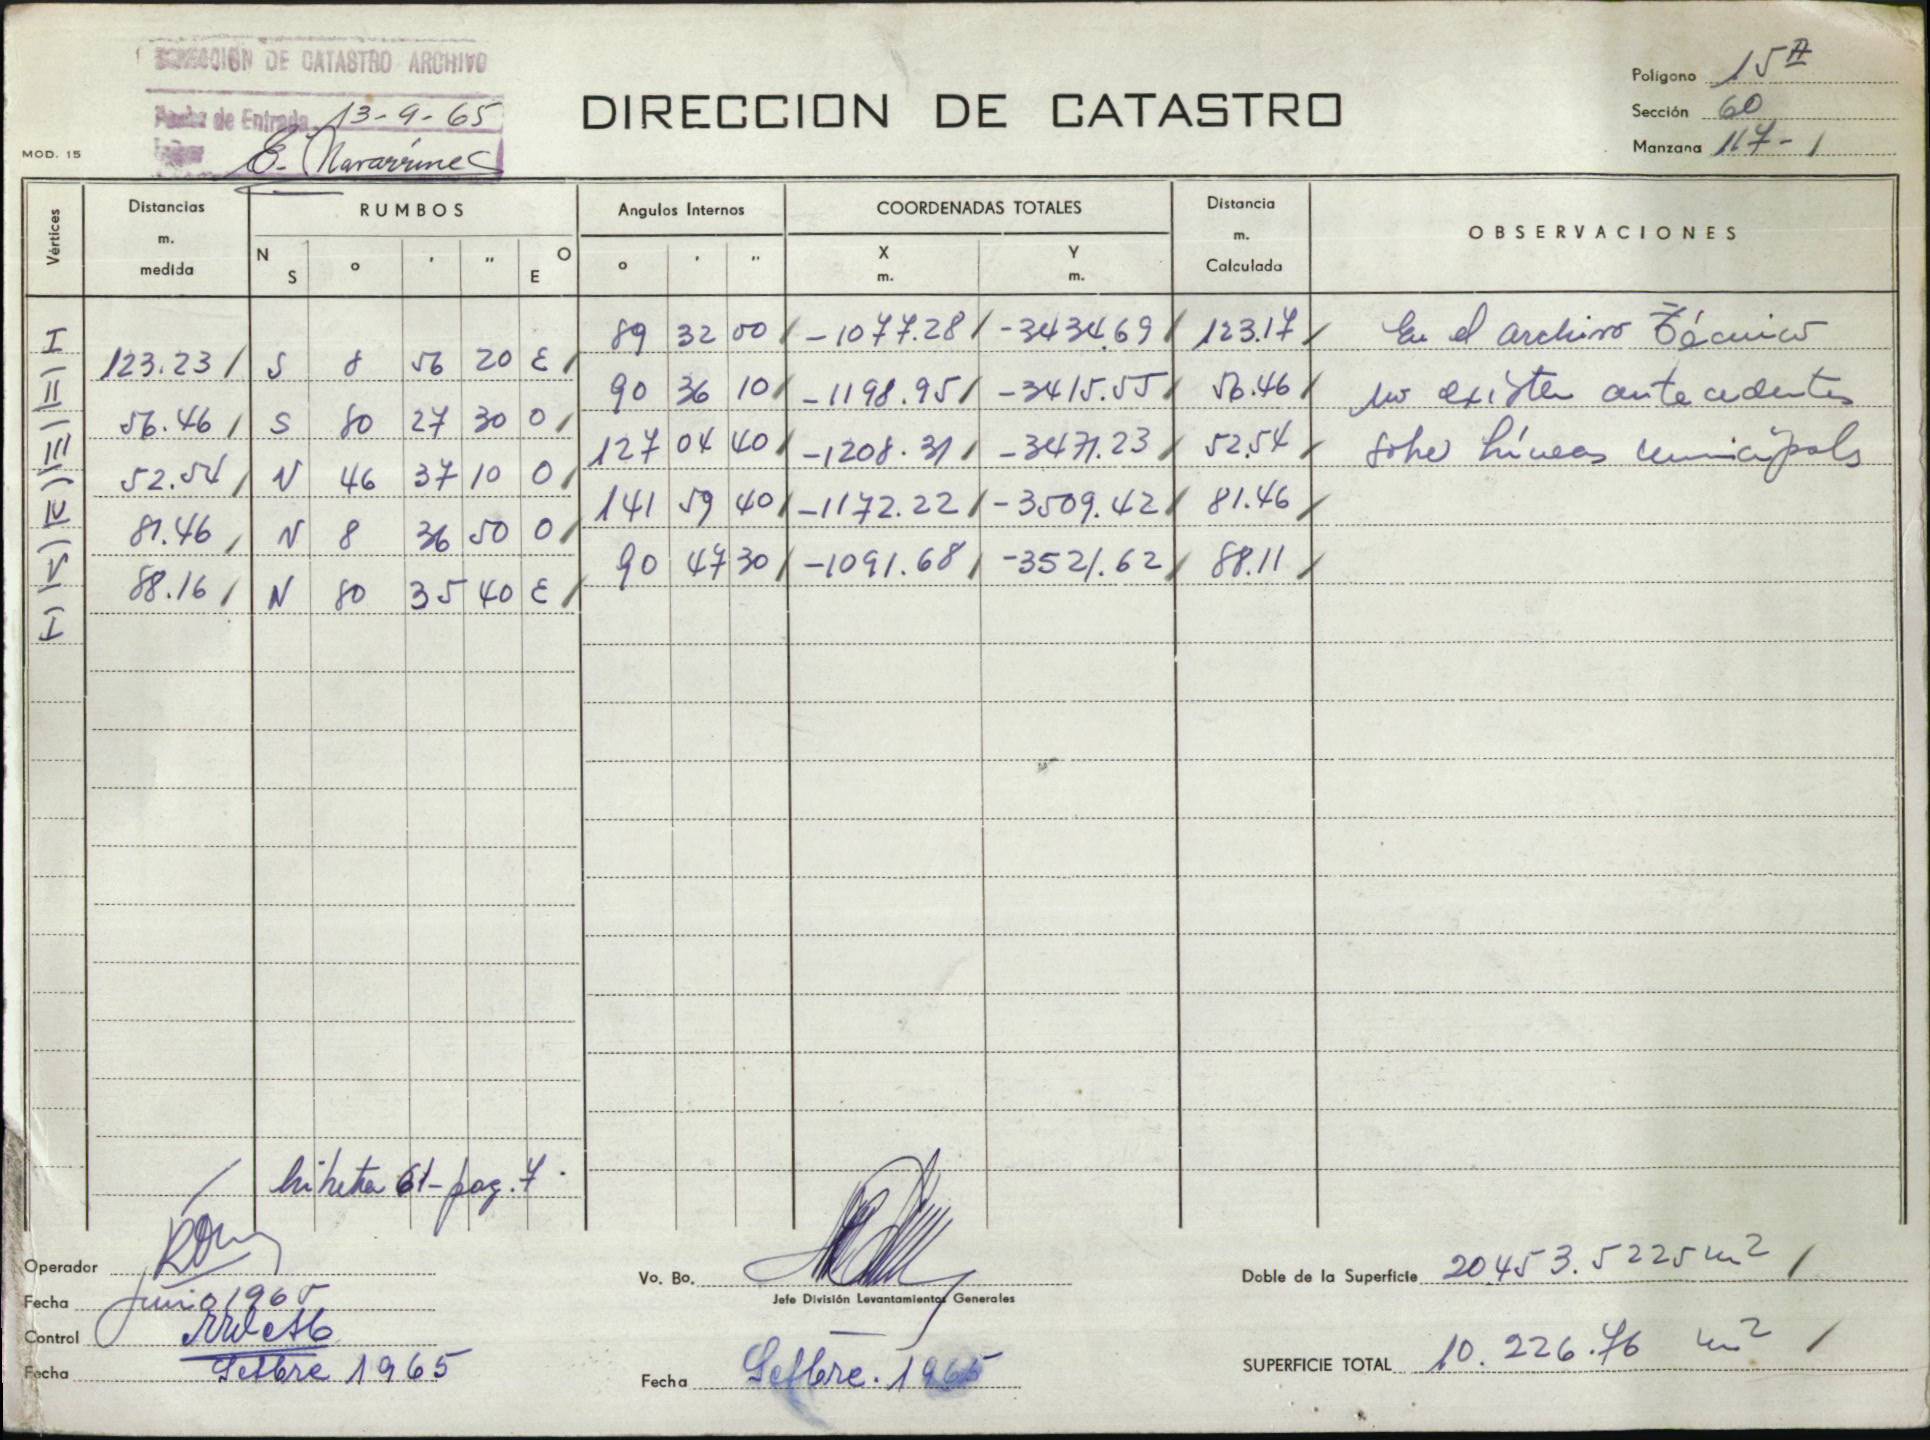 DIRECCION DE CATASTRO ARCHIVO
Fecha de Entrada 13-9-65
MOD. 15
DIRECCION DE CATASTRO
Polígono 15 A
Sección 60
Manzana 117-1
Vértices
Distancias m. medida
RUMBOS
N S ° ' " O E
Angulos Internos
° ' "
COORDENADAS TOTALES
X m. Y m.
Distancia m. Calculada
OBSERVACIONES
I 89 32 00 -1077.28 -3434.69 123.17 En el archivo Técnico
123.23 S 8 56 20 E
II 90 36 10 -1198.95 -3415.55 56.46 no existen antecedentes
56.46 S 80 27 30 O
III 127 04 40 -1208.31 -3471.23 52.54 sobre Líneas municipales
52.54 N 46 37 10 O
IV 141 59 40 -1172.22 -3509.42 81.46
81.46 N 8 36 50 O
V 90 47 30 -1091.68 -3521.62 88.11
88.16 N 80 35 40 E
I
libreta 61- pag. 7.
Operador
Fecha Junio 1965
Control
Fecha Setbre 1965
Vo. Bo.
Jefe División Levantamientos Generales
Fecha Setbre. 1965
Doble de la Superficie 20.453.5225 m2
SUPERFICIE TOTAL 10.226.76 m2